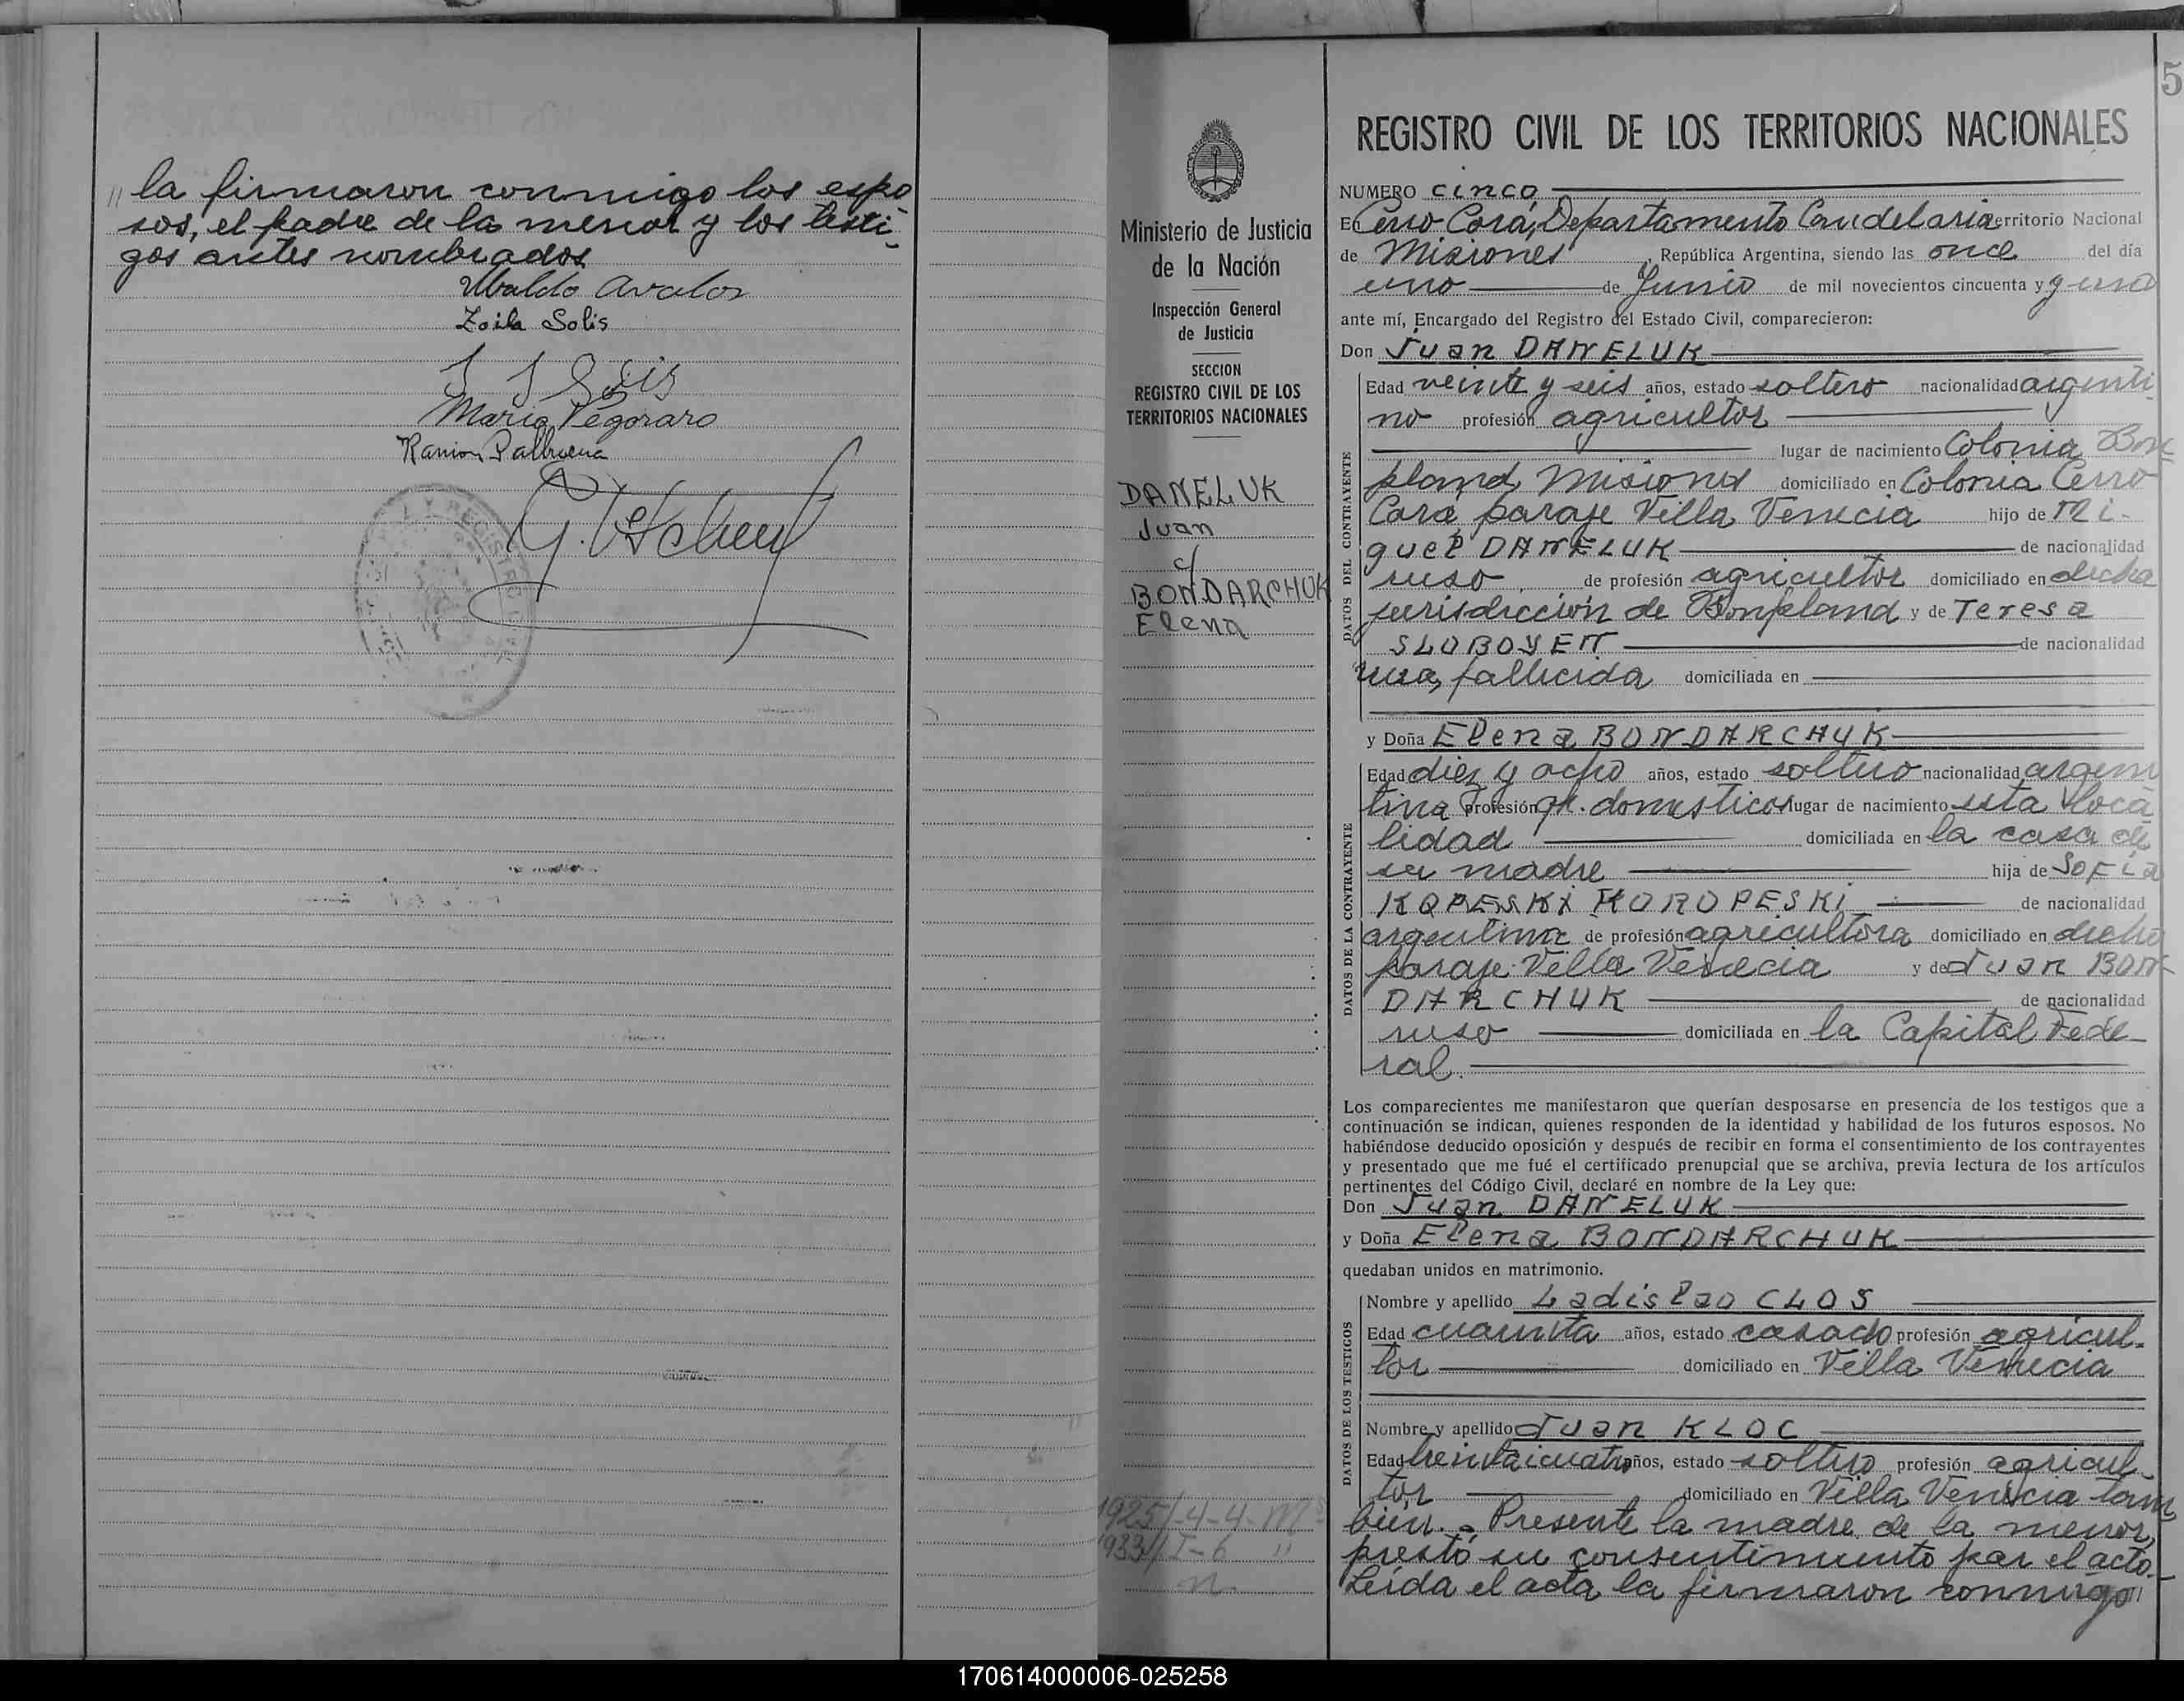 " la firmaron conmigo los espo
sos, el padre de la menor y los testi-
gos antes nombrados
Ubaldo Avalos
Zoila Solis
J J Solis
Maria Pegoraro
Ramon Balbuena
Ministerio de Justicia
de la Nación
Inspección General
de Justicia
SECCION
REGISTRO CIVIL DE LOS
TERRITORIOS NACIONALES
DANELUK
Juan
c/
BONDARCHUK
Elena
1925/-4-4-
1933/I-6 "
5
REGISTRO CIVIL DE LOS TERRITORIOS NACIONALES
NUMERO cinco
En Cerro Corá, Departamento Candelaria territorio Nacional
de Misiones, República Argentina, siendo las once del día
uno de Junio de mil novecientos cincuenta y y uno
ante mí, Encargado del Registro del Estado Civil, comparecieron:
Don Juan DANELUK
DATOS DEL CONTRAYENTE
Edad veinte y seis años, estado soltero nacionalidad argenti
no profesión agricultor
lugar de nacimiento Colonia Bon
pland, Misiones domiciliado en Colonia Cerro
Corá, paraje Villa Venecia hijo de Mi-
guel DANELUK de nacionalidad
ruso de profesión agricultor domiciliado en dicha
jurisdicción de Bonpland y de Teresa
SLOBOYEN de nacionalidad
rusa, fallecida domiciliada en
y Doña Elena BONDARCHUK
DATOS DE LA CONTRAYENTE
Edad diez y ocho años, estado soltero nacionalidad argen
tina profesión q. domesticos lugar de nacimiento esta loca
lidad domiciliada en la casa de
su madre hija de Sofia
KOPESKI KOROPESKI de nacionalidad
argentina de profesión agricultora domiciliado en dicho
paraje Villa Venecia y de Juan BON
DARCHUK de nacionalidad
ruso domiciliada en la Capital Fede-
ral.
Los comparecientes me manifestaron que querían desposarse en presencia de los testigos que a
continuación se indican, quienes responden de la identidad y habilidad de los futuros esposos. No
habiéndose deducido oposición y después de recibir en forma el consentimiento de los contrayentes
y presentado que me fué el certificado prenupcial que se archiva, previa lectura de los artículos
pertinentes del Código Civil, declaré en nombre de la Ley que:
Don Juan DANELUK
y Doña Elena BONDARCHUK
quedaban unidos en matrimonio.
DATOS DE LOS TESTIGOS
Nombre y apellido Ladislao CLOS
Edad cuarenta años, estado casado profesión agricul-
tor domiciliado en Villa Venecia
Nombre y apellido Juan KLOC
Edad treintaicuatro años, estado soltero profesión agricul
tor domiciliado en Villa Venecia tam
bien.- Presente la madre de la menor,
prestó su consentimiento par el acto.-
Leída el acta la firmaron conmigo "
170614000006-025258